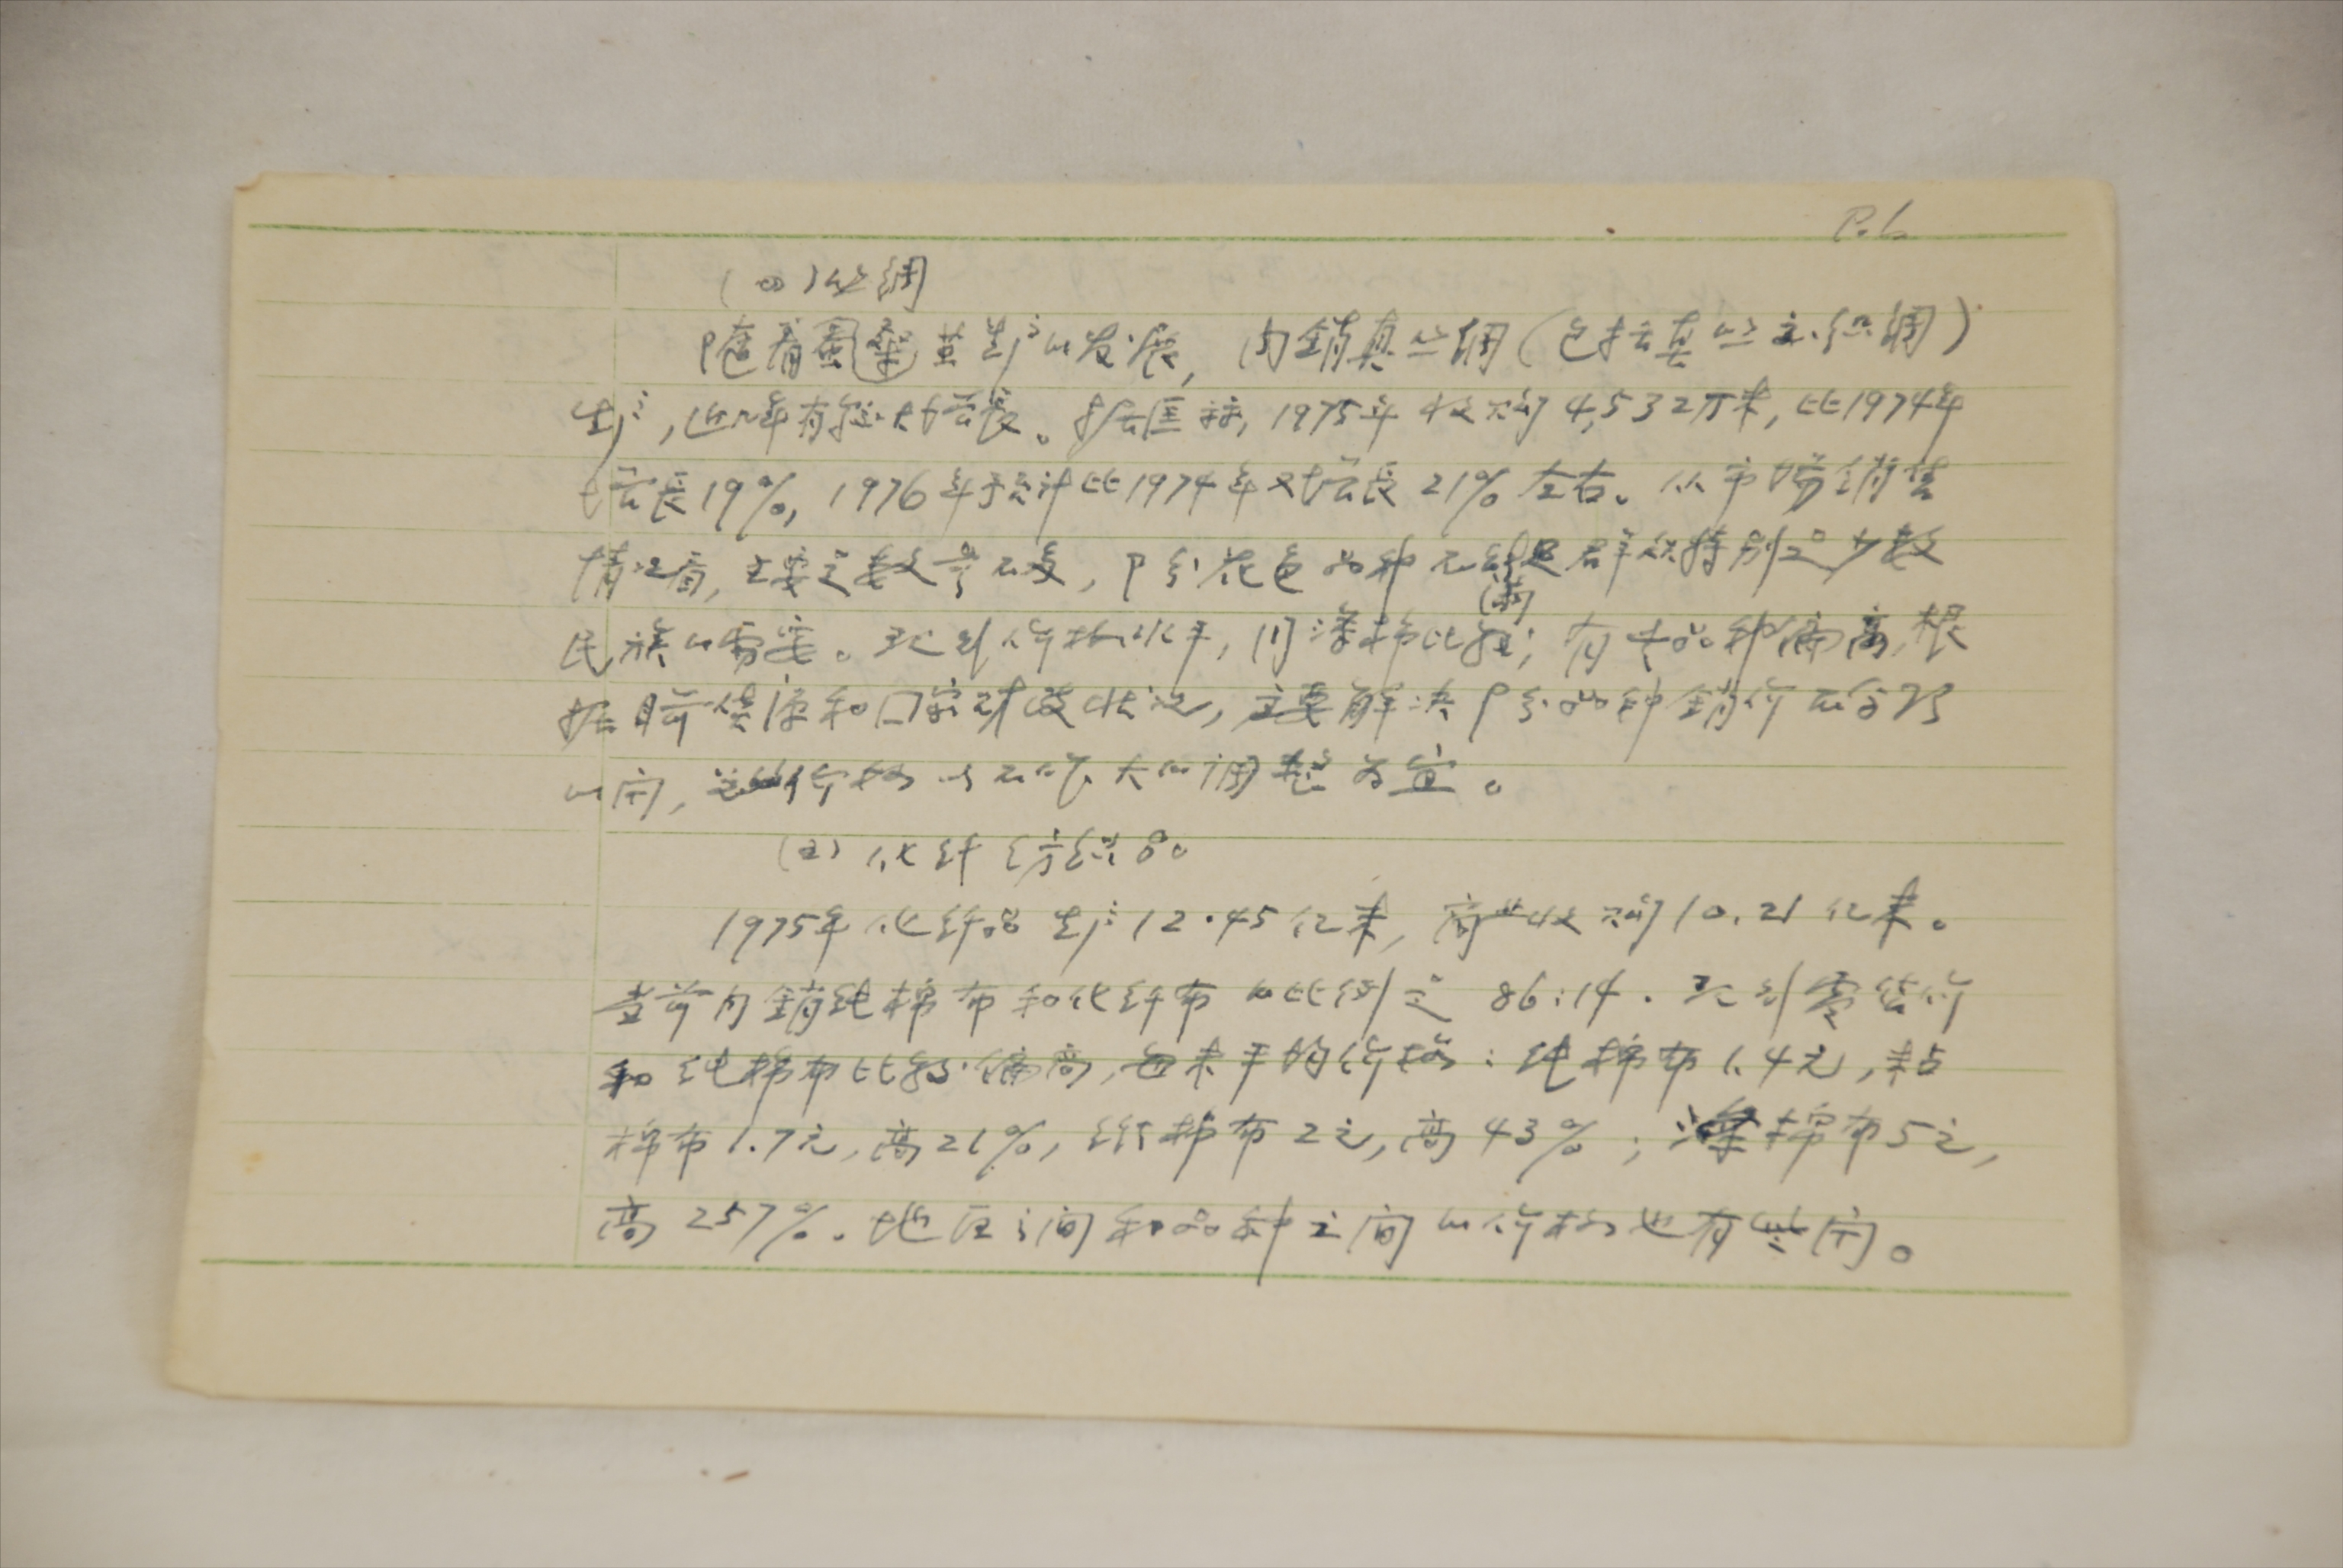 P.6
(四)丝绸
随着蚕桑茧生产的发展，内销真丝绸（包括真丝交织绸）
生产，近几年有较大增长。据匡算，1975年收购4,532万米，比1974年
增长19%，1976年预计比1974年又增长21%左右。从市场销售
情况看，主要是数量不足，部分花色品种不能满足群众特别是少数
民族的需要。现行价格水平，同涤棉比较，有些品种偏高，根
据目前货源和国家财政状况，主要解决部分品种销价不合理
的问，总的价格以不作大的调整为宜。
(五)化纤纺织品
1975年化纤品生产12.45亿米，商业收购10.21亿米。
当前内销纯棉布和化纤布的比例是86:14．现行零售价
和纯棉布比较偏高，每米平均价格：纯棉布1.4元，粘
棉布1.7元，高21%，维棉布2元，高43%；涤棉布5元，
高257%．地区之间和品种之间的价格也有些问。